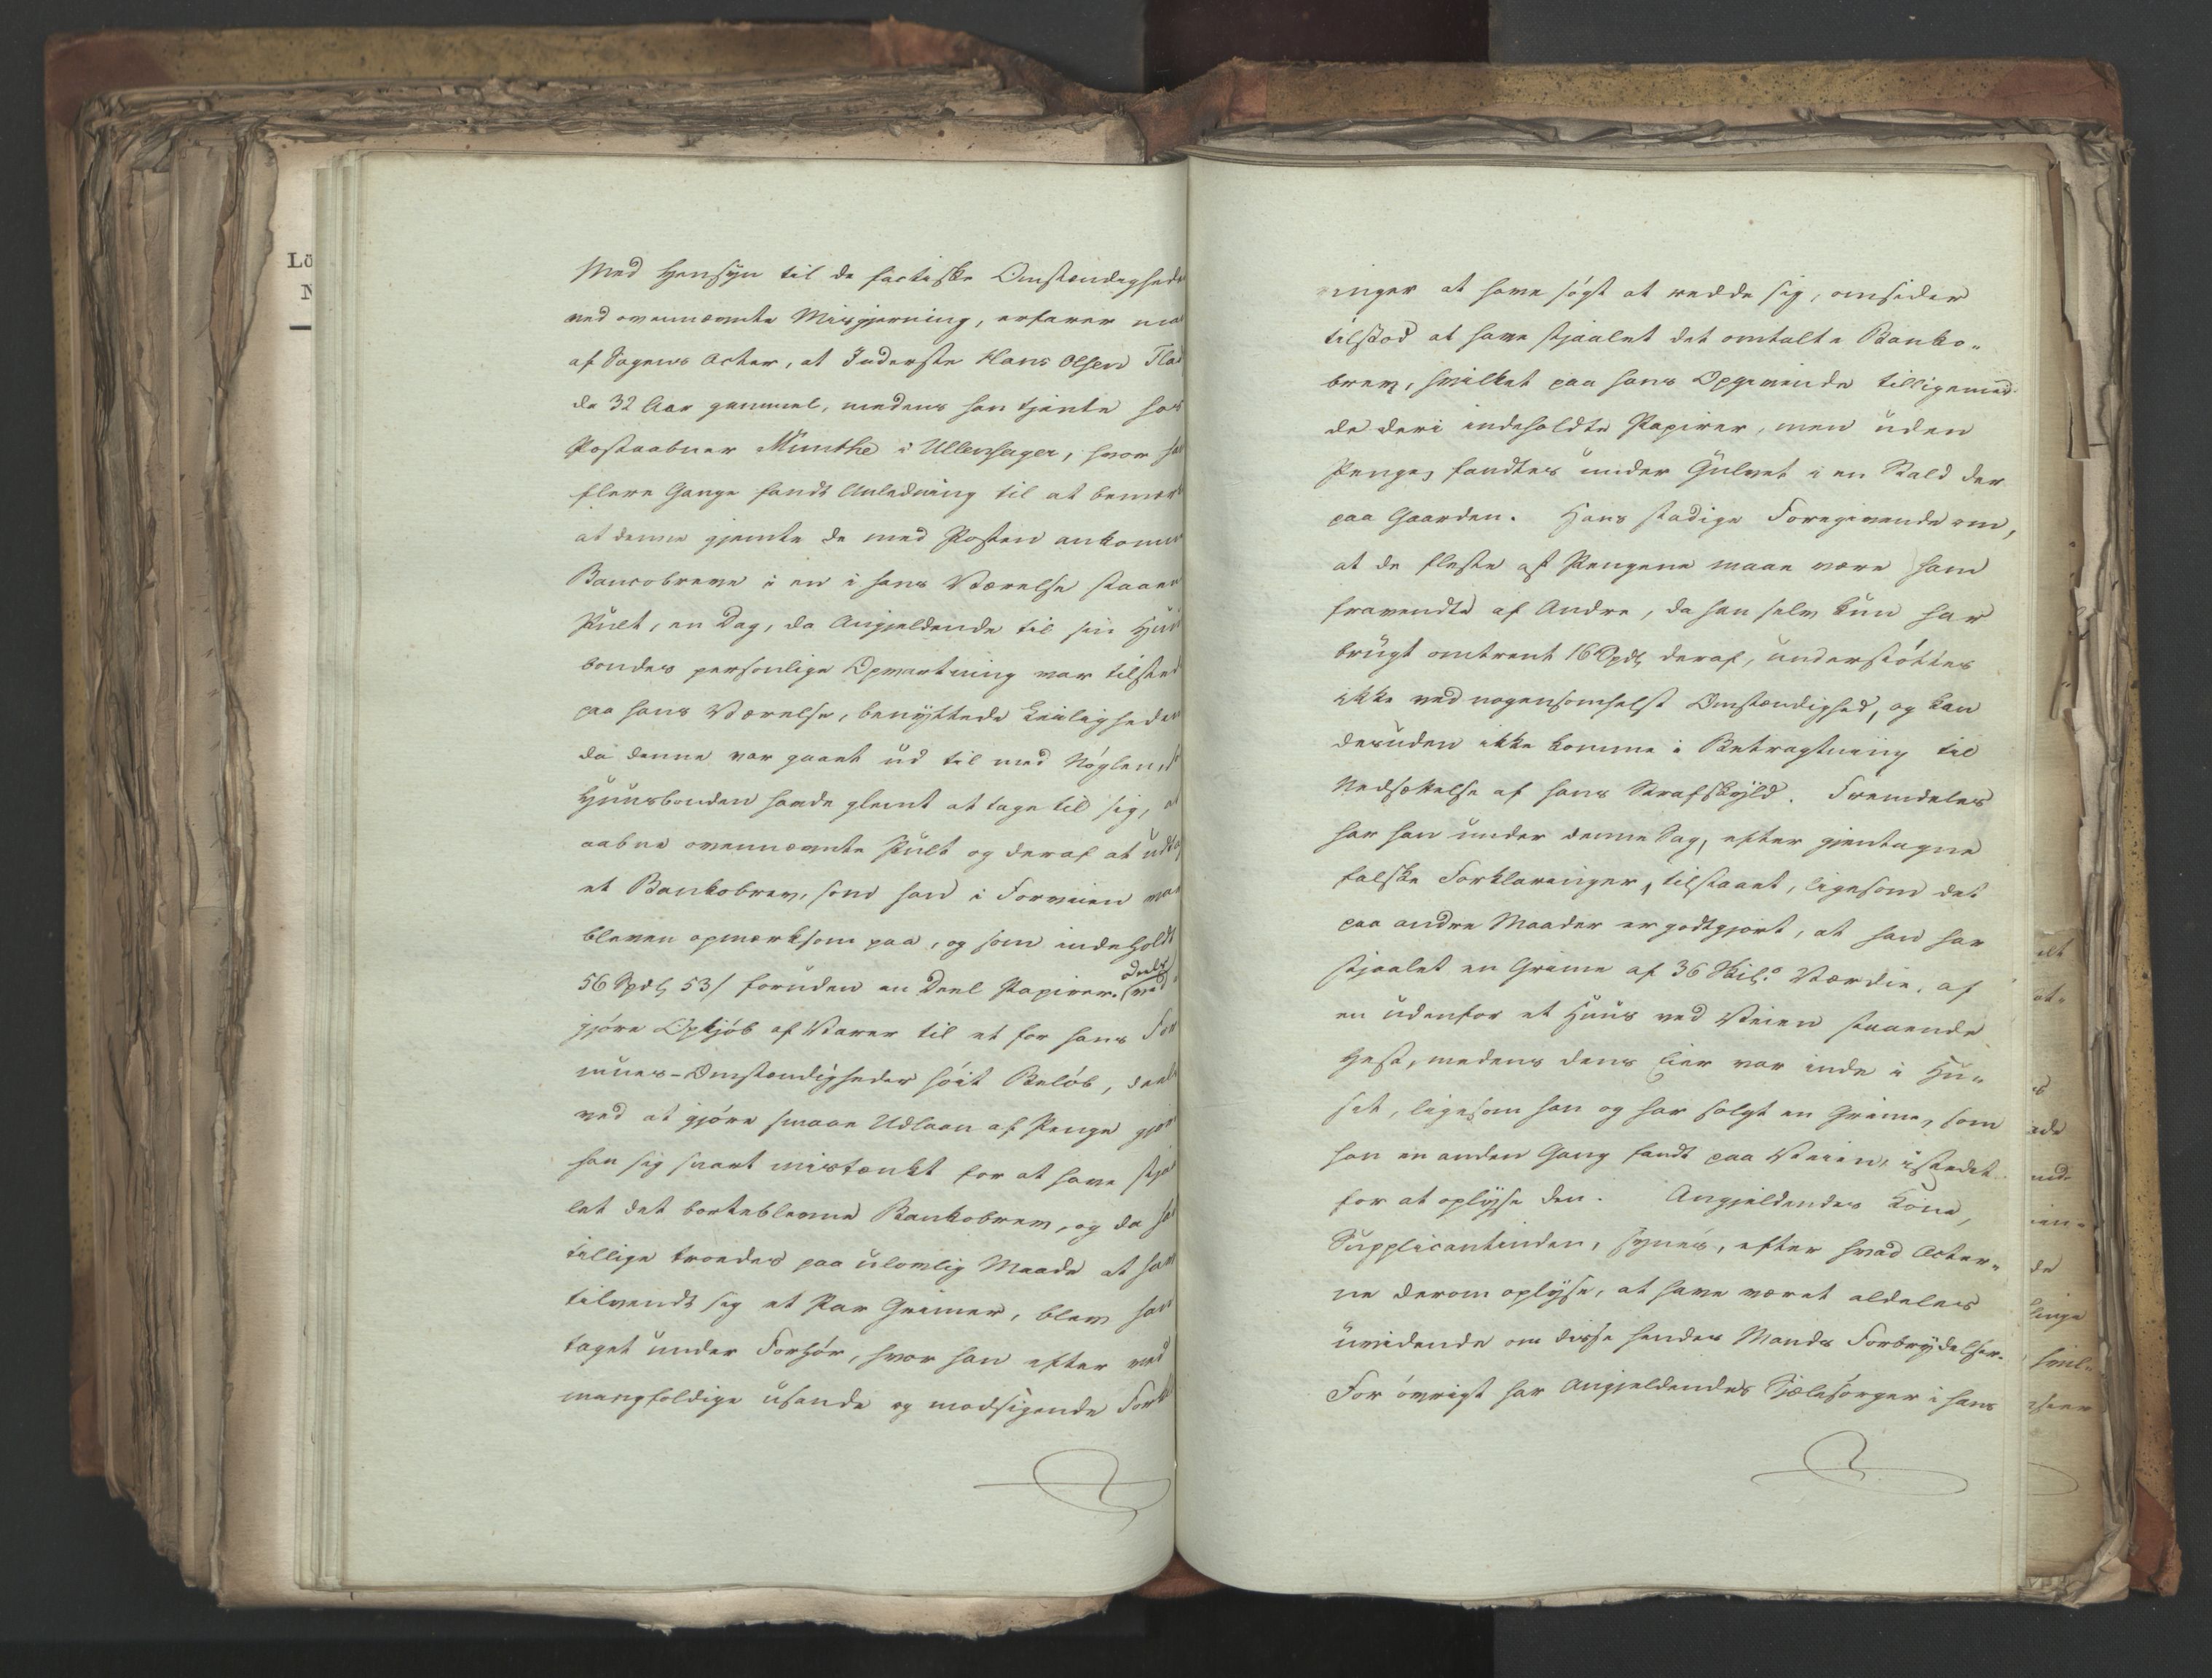 Lö
N
Med Hensyn til de factiske Omstændighede
ved ovennævnte Misgjerning, erfarer ma
af Sagens Acter, at Inderste Hans Olsen Fla
de 32 Aar gammel, medens han tjente hos
Postaabner Münthe i Ullensager, hvor ha
flere Gange fandt Anledning til at bemærk
at denne gjemte de med Posten ankomn
Bancobreve i en i hans Værelse staaen
Pult, en Dag, da Angjeldende til sin Huus
bondes personlige Opvartning var tilsted
paa hans Værelse, benyttede Leiligheden
da denne var gaaet ud til med Nøglen,
Huusbonden havde glemt at tage til sig, at
aabne ovennævnte Pult og deraf at udta
et Bankobrev, som han i Forveien var
bleven opmærksom paa, og som indeholdt
56 Spdl 53 / foruden en Deel Papirer. (deels ved
gjøre Opkjøb af Varer til et for hans For
mues-Omstændigheder høit Beløb, deels
ved at gjøre smaae Udlaan af Penge gjor
han sig snart mistænkt for at have stjaa
let det borteblevne Bankobrev, og da ha
tillige troedes paa ulovlig Maade at have
tilvendt sig et Par Grimer, blev han
taget under Forhør, hvor han efter ved
mangfoldige usande og modsigende Forkl
inger at have søgt at redde sig, omsider
tilstod at have stjaalet det omtalte Banko„
brev, hvilket paa hans Opgivende tilligemed
de deri indeholdte Papirer, men uden
Penge, fandtes under Gulvet i en Stald der
paa Gaarden. Hans stadige Foregivende om,
at de fleste af Pengene maae være ham
fravendte af Andre, da han selv kun har
brugt omtrent 16 Spdl deraf, understøttes
ikke ved nogensomhelst Omstændighed, og kan
desuden ikke komme i Betragtning til
Nedsættelse af hans Strafskyld. Fremdeles
har han under denne Sag, efter gjentagne
falske Forklaringer, tilstaaet, ligesom det
paa andre Maader er godtgjort, at han har
stjaalet en Grime af 36 Skil:s Værdie, af
en udenfor et Huus ved Veien staaende
Hest, medens dens Eier var inde i Hu„
set, ligesom han og har solgt en Grime, som
han en anden Gang fandt paa Veien, istedet
for at oplyse den. Angjeldendes Kone,
Supplicantinden, synes, efter hvad Acter„
ne derom oplyse, at have været aldeles
uvidende om disse hendes Mands Forbrydelser.
For øvrigt har Angjeldendes Sjælesørger i hans